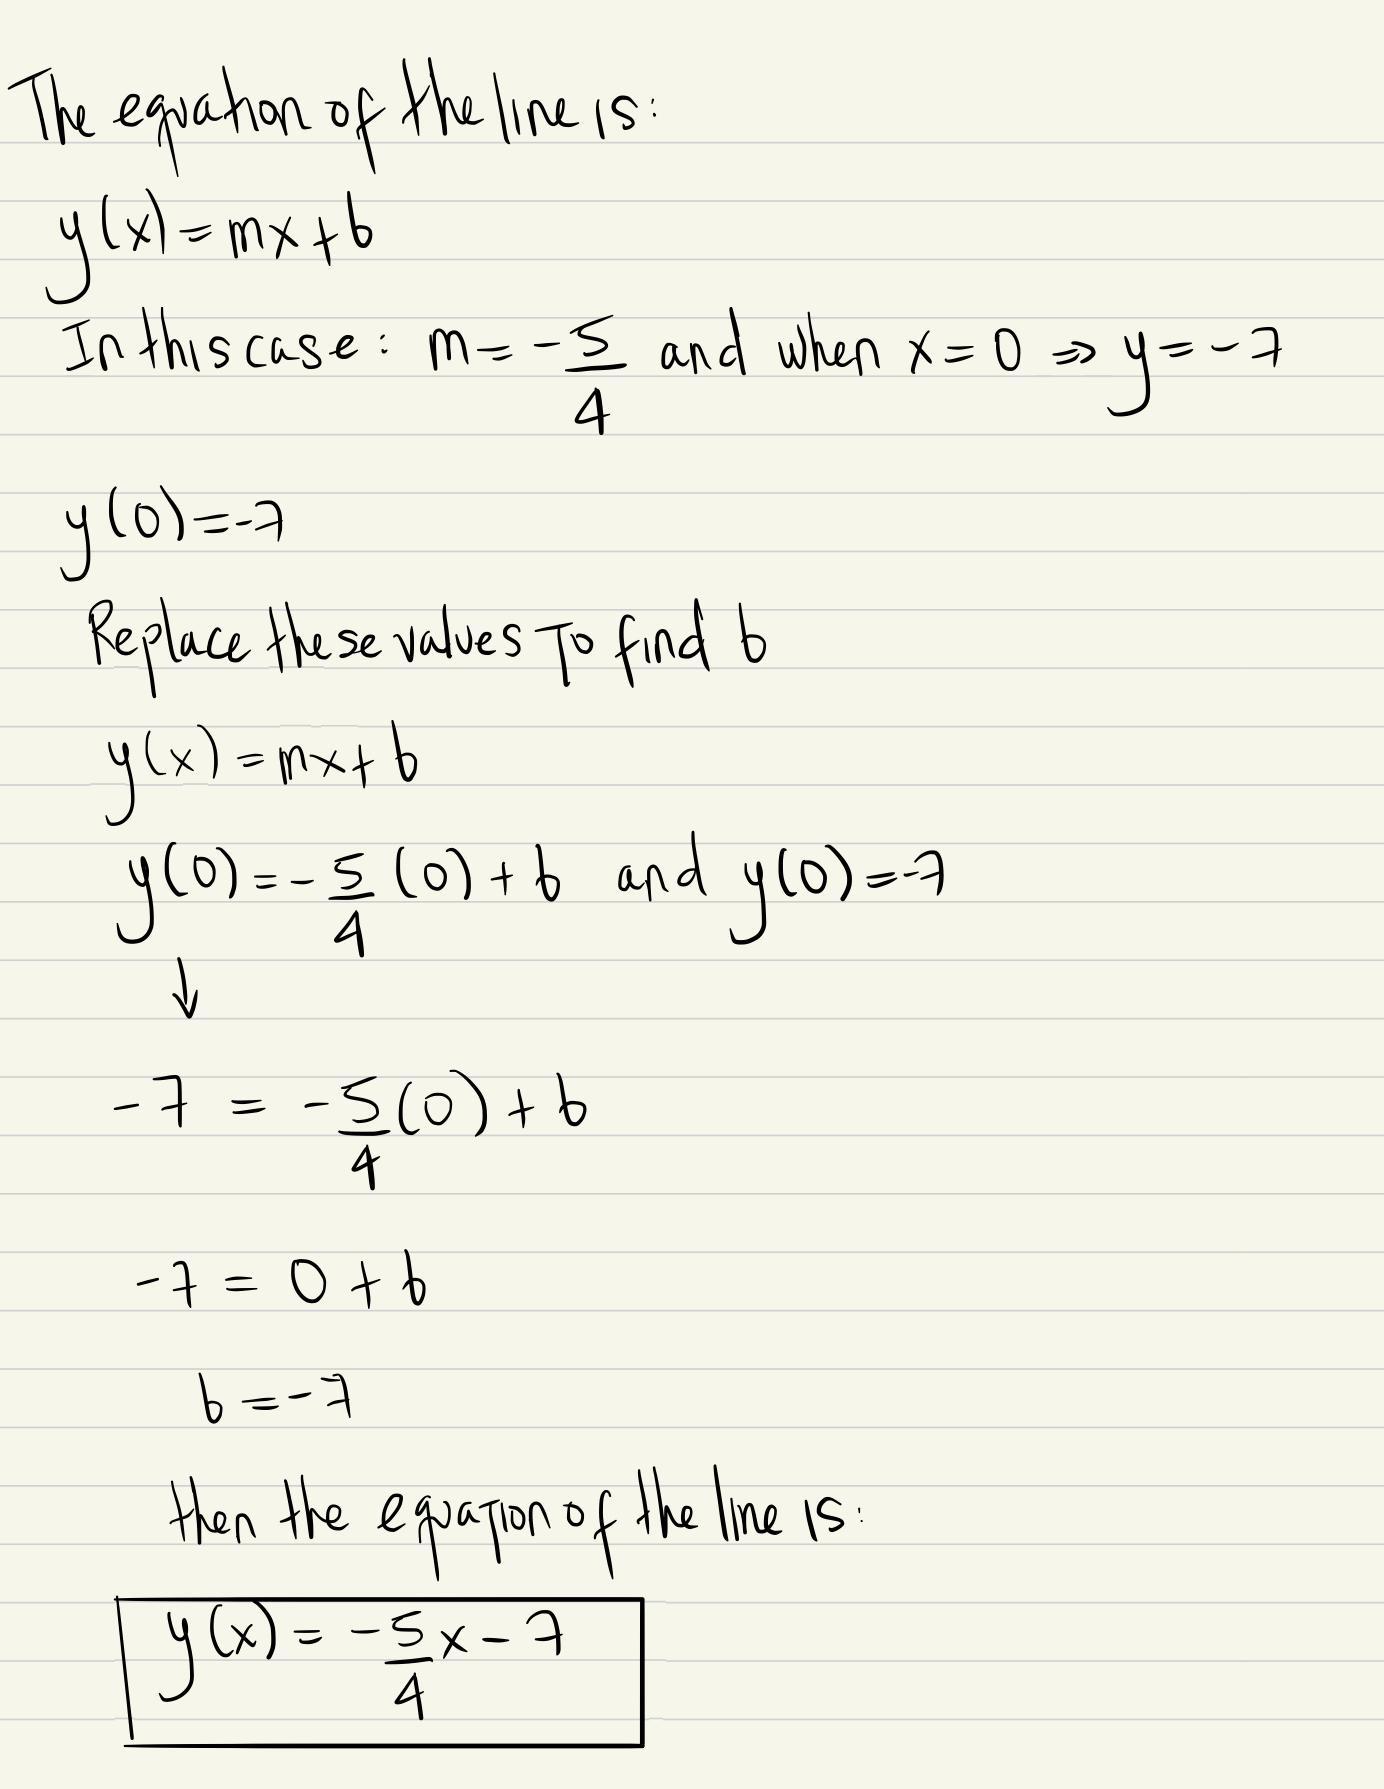 The equation of the line is:
y(x) = mx + b
In this case: m = -5/4 and when x = 0 ⇒ y = -7
y(0) = -7
Replace these values To find b
y(x) = mx + b
y(0) = -5/4 (0) + b and y(0) = -7
↓
-7 = -5/4 (0) + b
-7 = 0 + b
b = -7
then the equation of the line is:
y(x) = -5/4 x - 7